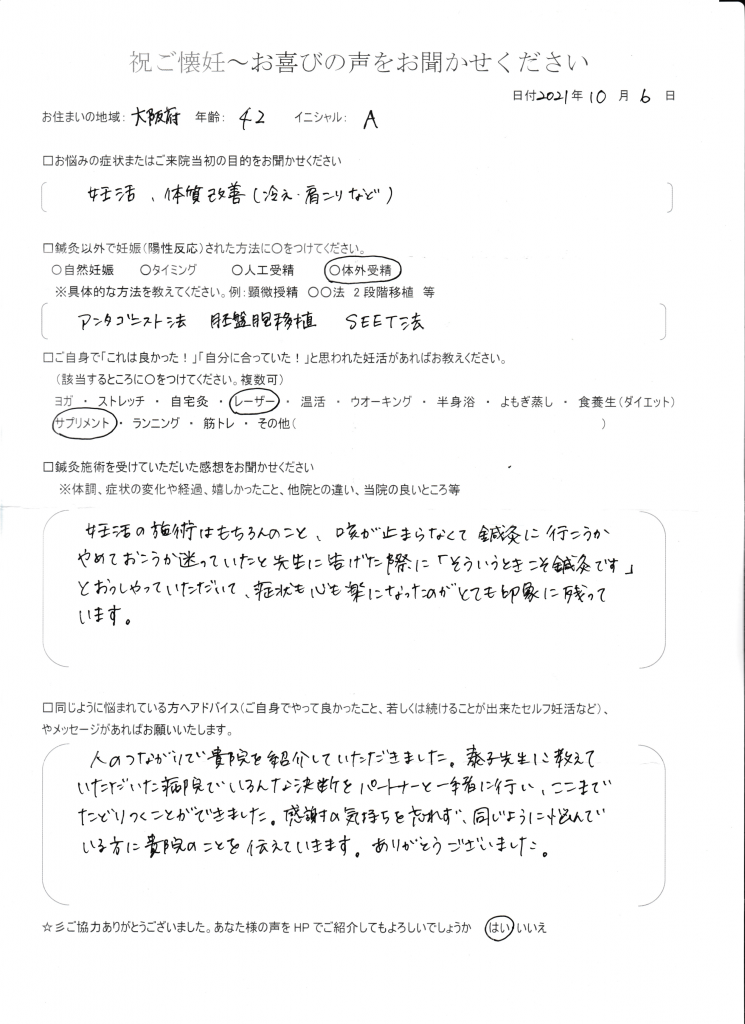 祝ご懐妊～お喜びの声をお聞かせください
日付2021年 10 月 6 日
お住まいの地域: 大阪府 年齢: 42 イニシャル: A
□お悩みの症状またはご来院当初の目的をお聞かせください
妊活、体質改善(冷え・肩こりなど)
□鍼灸以外で妊娠(陽性反応)された方法に○をつけてください。
○自然妊娠 ○タイミング ○人工受精 ○体外受精
※具体的な方法を教えてください。例:顕微授精 ○○法 2段階移植 等
アンタゴニスト法 胚盤胞移植 SEET法
□ご自身で「これは良かった!」「自分に合っていた!」と思われた妊活があればお教えください。
(該当するところに○をつけてください。複数可)
ヨガ ・ ストレッチ ・ 自宅灸 ・ レーザー ・ 温活 ・ ウオーキング ・ 半身浴 ・ よもぎ蒸し ・ 食養生(ダイエット)
サプリメント ・ ランニング ・ 筋トレ ・ その他( )
□鍼灸施術を受けていただいた感想をお聞かせください
※体調、症状の変化や経過、嬉しかったこと、他院との違い、当院の良いところ等
妊活の施術はもちろんのこと、咳が止まらなくて鍼灸に行こうか
やめておこうか迷っていたと先生に告げた際に「そういうときこそ鍼灸です」
とおっしゃっていただいて、症状も心も楽になったのがとても印象に残って
います。
□同じように悩まれている方へアドバイス(ご自身でやって良かったこと、若しくは続けることが出来たセルフ妊活など)、
やメッセージがあればお願いいたします。
人のつながりで貴院を紹介していただきました。泰子先生に教えて
いただいた病院でいろんな決断をパートナーと一緒に行い、ここまで
たどりつくことができました。感謝の気持ちを忘れず、同じように悩んで
いる方に貴院のことを伝えていきます。ありがとうございました。
☆彡ご協力ありがとうございました。あなた様の声をHPでご紹介してもよろしいでしょうか はい・いいえ